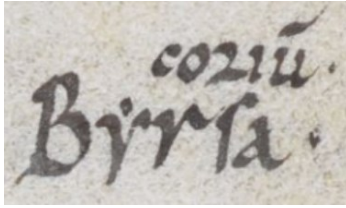 coriū.
Byrſa.